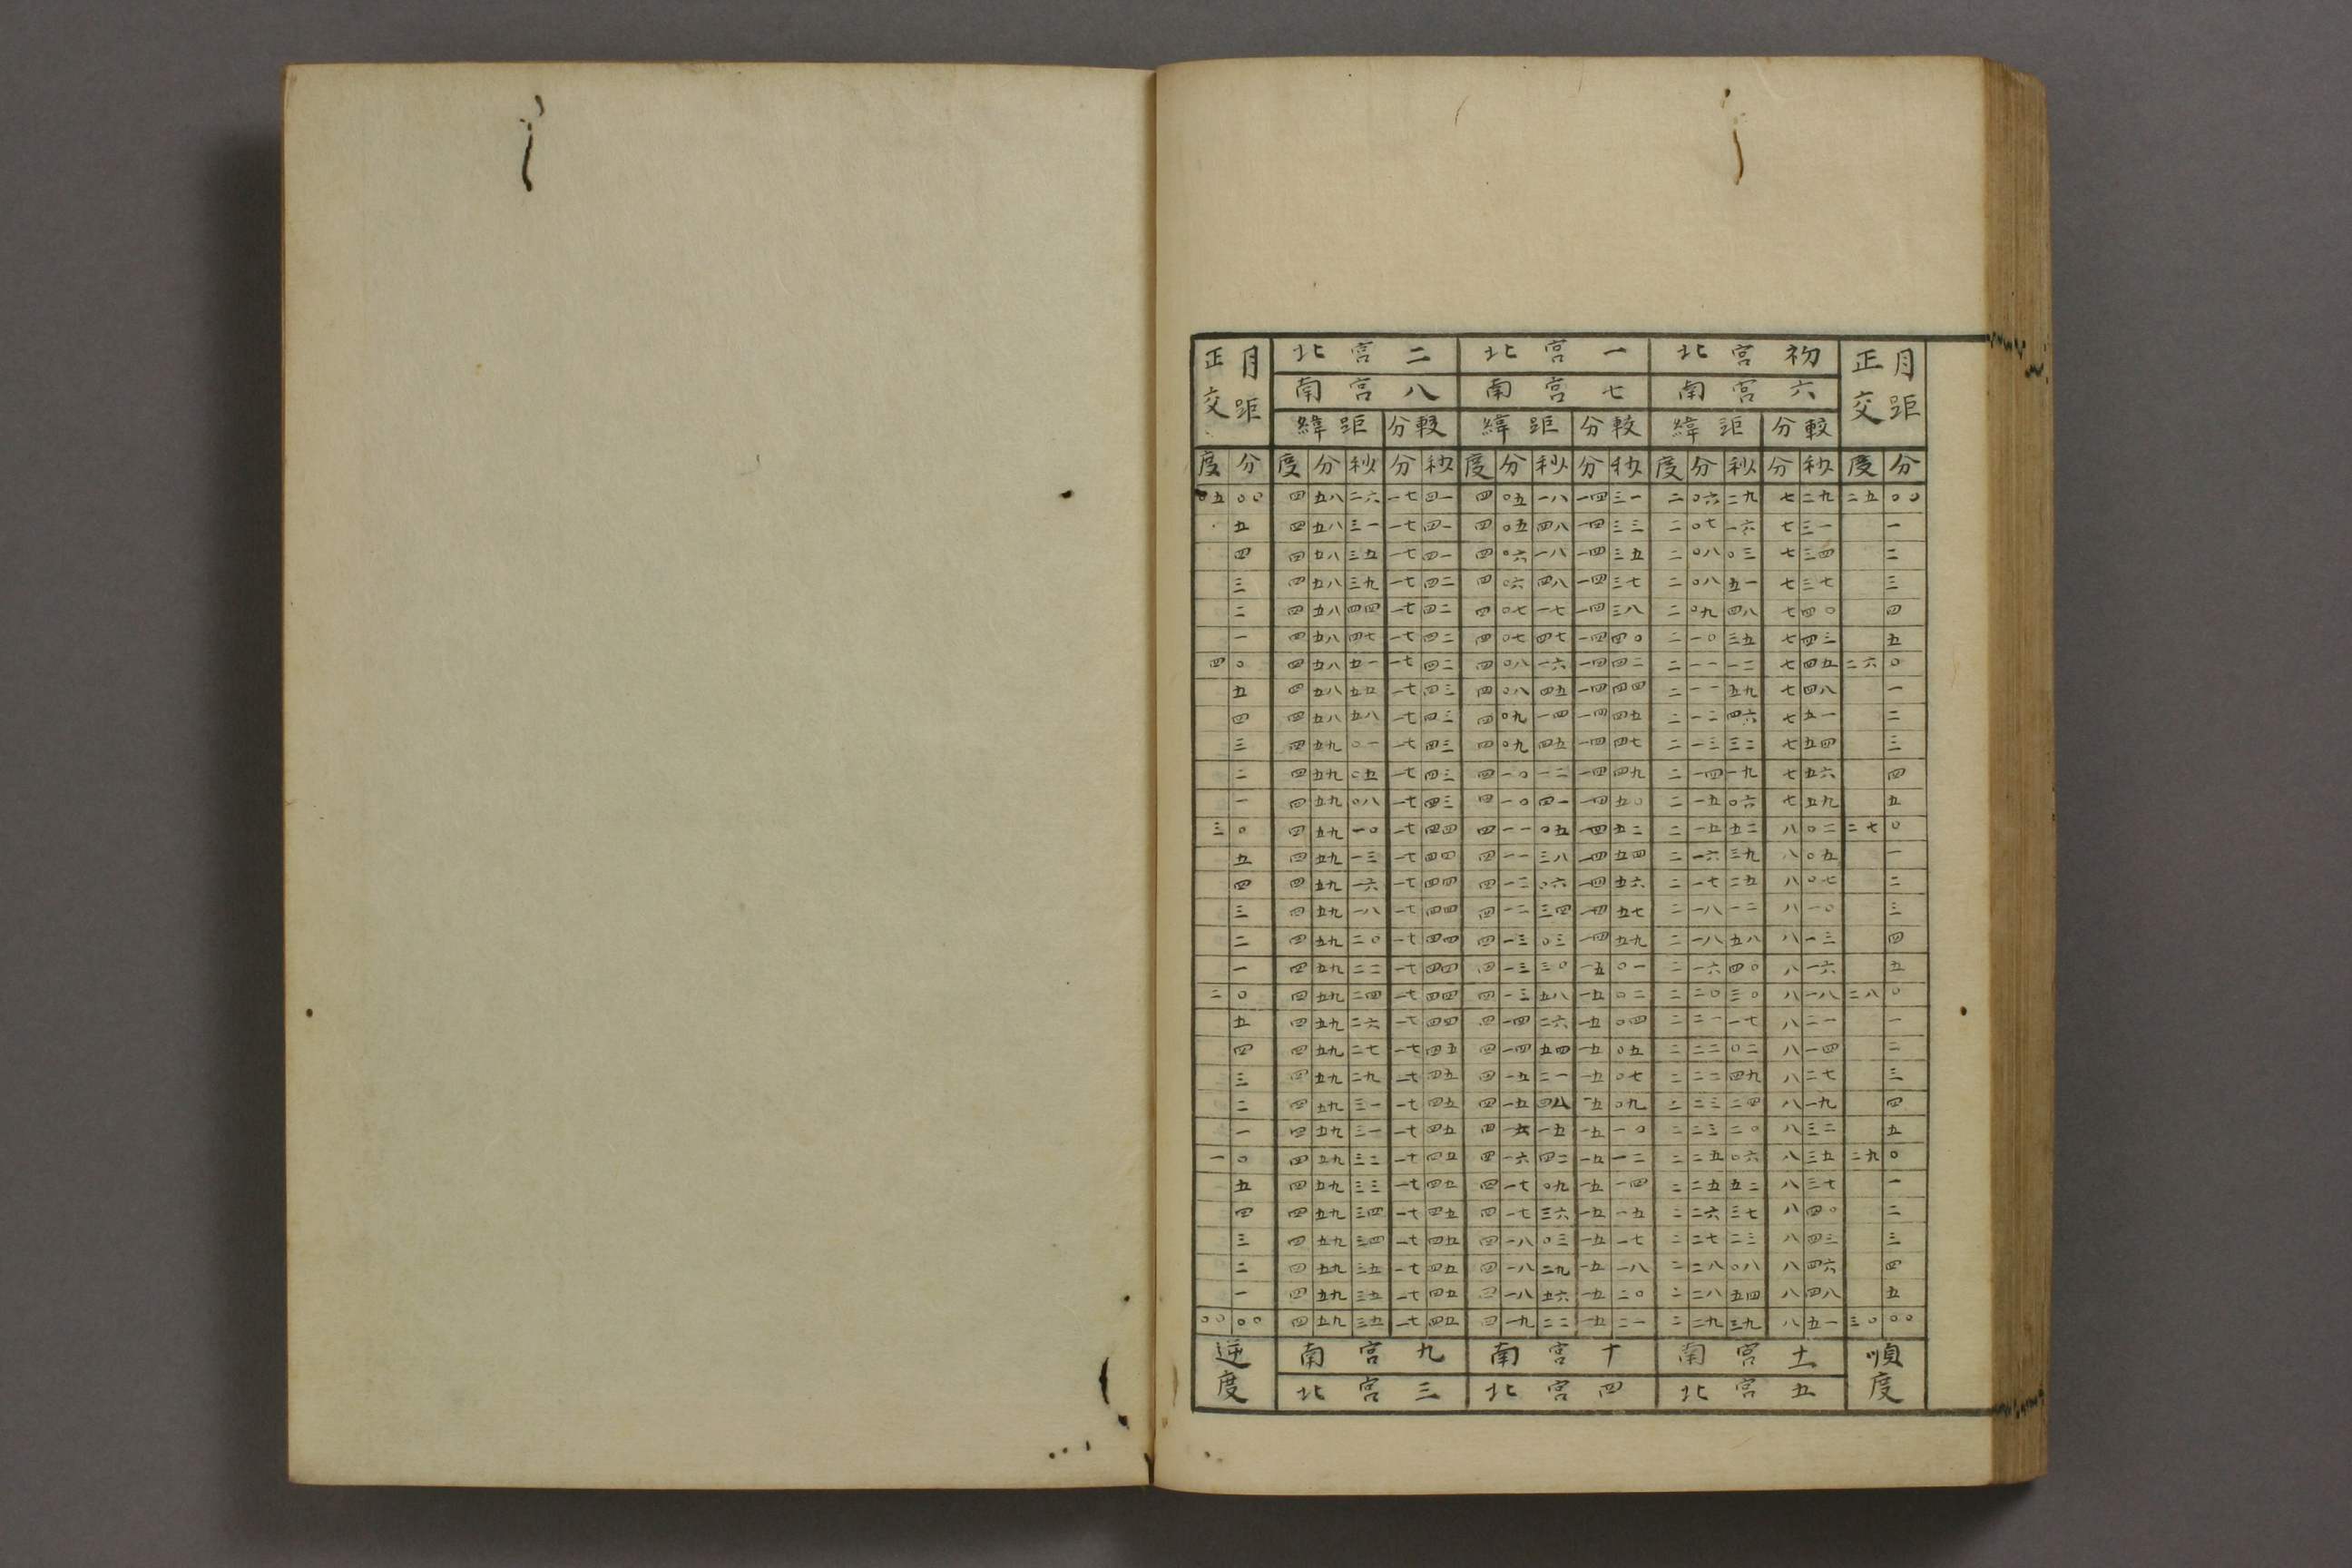 月距正交 初宮北 一宮北 二宮北 月距正交
六宮南 七宮南 八宮南
較分 距緯 較分 距緯 較分 距緯
度 分 度 分 秒 分 秒 度 分 秒 分 秒 度 分 秒 分 秒 度 分
〇五 〇〇 四 五八 二六 一七 四一 四 〇五 一八 一四 三一 二 〇六 二九 七 二九 二五 〇〇
五 四 五八 三一 一七 四一 四 〇五 四八 一四 三三 二 〇七 一六 七 三一 一
四 四 五八 三五 一七 四一 四 〇六 一八 一四 三五 二 〇八 〇三 七 三四 二
三 四 五八 三九 一七 四二 四 〇六 四八 一四 三七 二 〇八 五一 七 三七 三
二 四 五八 四四 一七 四二 四 〇七 一七 一四 三八 二 〇九 四八 七 四〇 四
一 四 五八 四七 一七 四二 四 〇七 四七 一四 四〇 二 一〇 三五 七 四三 五
四 〇 四 五八 五一 一七 四二 四 〇八 一六 一四 四二 二 一一 一二 七 四五 二六 〇
五 四 五八 五四 一七 四三 四 〇八 四五 一四 四四 二 一一 五九 七 四八 一
四 四 五八 五八 一七 四三 四 〇九 一四 一四 四五 二 一二 四六 七 五一 二
三 四 五九 〇一 一七 四三 四 〇九 四五 一四 四七 二 一三 三二 七 五四 三
二 四 五九 〇五 一七 四三 四 一〇 一二 一四 四九 二 一四 一九 七 五六 四
一 四 五九 〇八 一七 四三 四 一〇 四一 一四 五〇 二 一五 〇六 七 五九 五
三 〇 四 五九 一〇 一七 四四 四 一一 〇五 一四 五二 二 一五 五二 八 〇二 二七 〇
五 四 五九 一三 一七 四四 四 一一 三八 一四 五四 二 一六 三九 八 〇五 一
四 四 五九 一六 一七 四四 四 一二 〇六 一四 五六 二 一七 二五 八 〇七 二
三 四 五九 一八 一七 四四 四 一二 三四 一四 五七 二 一八 一二 八 一〇 三
二 四 五九 二〇 一七 四四 四 一三 〇三 一四 五九 二 一八 五八 八 一三 四
一 四 五九 二二 一七 四四 四 一三 三〇 一五 〇一 二 一六 四〇 八 一六 五
二 〇 四 五九 二四 一七 四四 四 一三 五八 一五 〇二 二 二〇 三〇 八 一八 二八 〇
五 四 五九 二六 一七 四四 四 一四 二六 一五 〇四 二 二一 一七 八 二一 一
四 四 五九 二七 一七 四五 四 一四 五四 一五 〇五 二 二二 〇二 八 一四 二
三 四 五九 二九 一七 四五 四 一五 二一 一五 〇七 二 二二 四九 八 二七 三
二 四 五九 三一 一七 四五 四 一五 四八 一五 〇九 二 二三 二四 八 一九 四
一 四 五九 三一 一七 四五 四 一六 一五 一五 一〇 二 二三 二〇 八 三二 五
一 〇 四 五九 三二 一七 四五 四 一六 四二 一五 一二 二 二五 〇六 八 三五 二九 〇
五 四 五九 三三 一七 四五 四 一七 〇九 一五 一四 二 二五 五二 八 三七 一
四 四 五九 三四 一七 四五 四 一七 三六 一五 一五 二 二六 三七 八 四〇 二
三 四 五九 三四 一七 四五 四 一八 〇三 一五 一七 二 二七 二三 八 四三 三
二 四 五九 三五 一七 四五 四 一八 二九 一五 一八 二 二八 〇八 八 四六 四
一 四 五九 三五 一七 四五 四 一八 五六 一五 二〇 二 二八 五四 八 四八 五
〇〇 〇〇 四 五九 三五 一七 四五 四 一九 二二 一五 二一 二 二九 三九 八 五一 三〇 〇〇
順度 十一宮南 十宮南 九宮南 逆度
五宮北 四宮北 三宮北